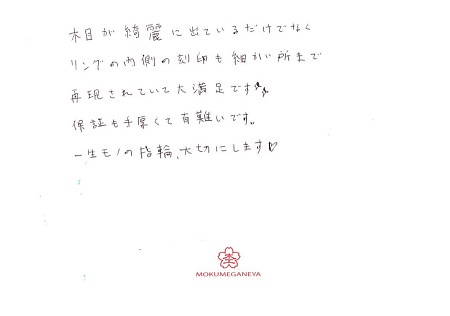 木目が綺麗に出ているだけでなく
リングの内側の刻印も細かい所まで
再現されていて大満足です☆
保証も手厚くて有難いです。
一生モノの指輪、大切にします♡
MOKUMEGANEYA